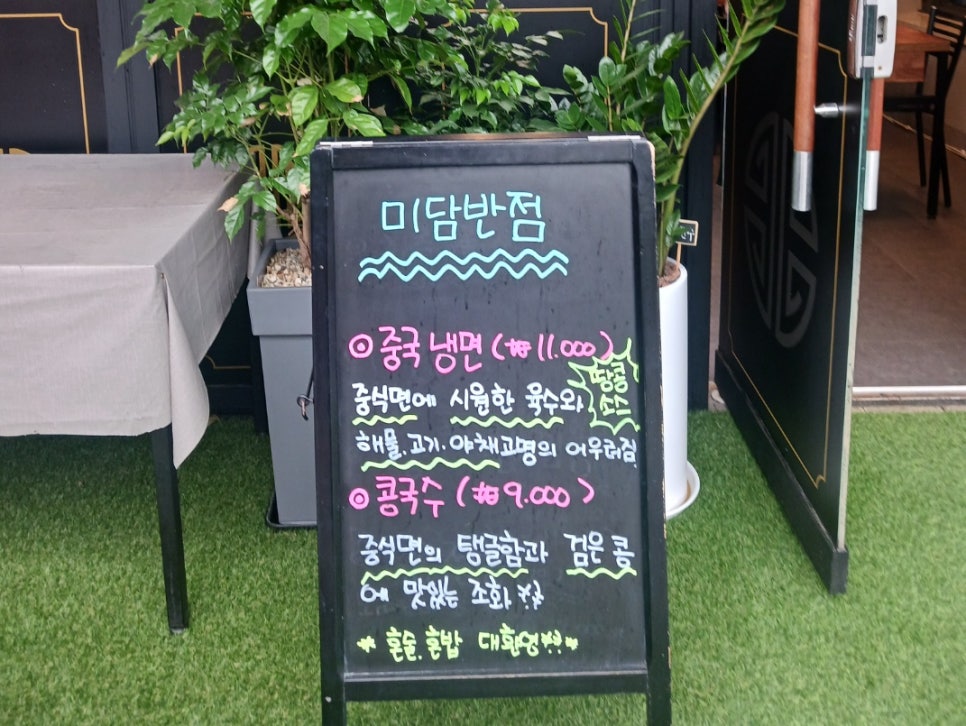 미담반점
◎ 중국냉면 (₩11.000)
중식면에 시원한 육수와
땅콩
소스
해물.고기.야채고명의 어우러짐
◎ 콩국수 (₩9.000)
중식면의 탱글함과 검은콩
에 맛있는 조화
* 혼술.혼밥 대환영**